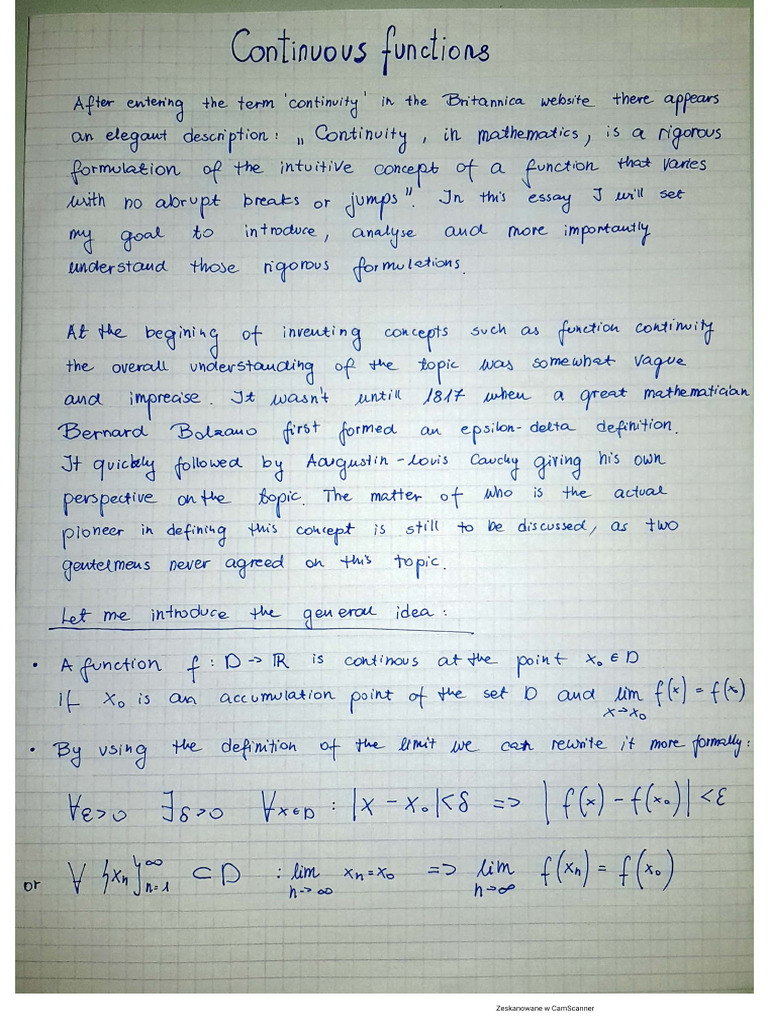 Continuous functions
After entering the term 'continuity' in the Britannica website there appears
an elegant description: „Continuity, in mathematics, is a rigorous
formulation of the intuitive concept of a function that varies
with no abrupt breaks or jumps". In this essay I will set
my goal to introduce, analyse and more importantly
understand those rigorous formulations.
At the begining of inventing concepts such as function continuity
the overall understanding of the topic was somewhat vague
and imprecise. It wasn't untill 1817 when a great mathematician
Bernard Bolzano first formed an epsilon-delta definition.
It quickly followed by Aaugustin-Louis Cauchy giving his own
perspective on the topic. The matter of who is the actual
pioneer in defining this concept is still to be discussed, as two
gentelmens never agreed on this topic.
Let me introduce the general idea:
• A function f: D → ℝ is continous at the point x₀ ∈ D
if x₀ is an accumulation point of the set D and lim x→x₀ f(x) = f(x₀)
• By using the definition of the limit we can rewrite it more formally:
∀ε>0 ∃δ>0 ∀x∈D : |x - x₀| < δ => |f(x) - f(x₀)| < ε
or ∀ {xₙ}ₙ₌₁^∞ ⊂ D : lim n→∞ xₙ = x₀ => lim n→∞ f(xₙ) = f(x₀)
Zeskanowane w CamScanner